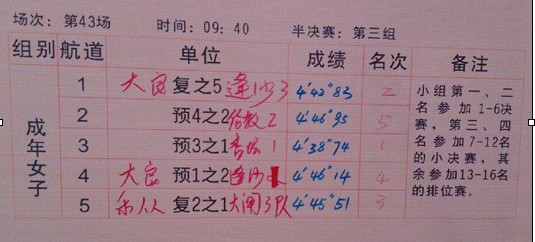 场次：第43场 时间：09：40 半决赛：第三组
组别 航道 单位 成绩 名次 备注
成年女子
1 大良 复之5 逢沙3 4'42"83 2
2 预4之2 伦教2 4'46"95 5
3 预3之1 杏坛1 4'38"74 1
4 大良 预1之2 逢沙 4'46"14 4
5 乐从 复2之1 大闸3队 4'45"51 3
小组第一、二
名参加1-6决
赛，第三、四
名参加7-12名
的小决赛，其
余参加13-16名
的排位赛。